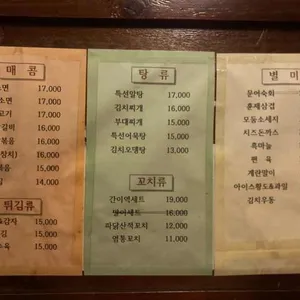 매 콤
소면 17,000
소면 17,000
고기 17,000
갈비 16,000
볶음 16,000
장치) 16,000
볶음 15,000
14,000
튀김류
&감자 15,000
김 15,000
15,000
탕 류
특선알탕 17,000
김치찌개 16,000
부대찌개 15,000
특선어묵탕 15,000
김치오뎅탕 13,000
꼬치류
간이역세트 19,000
명이세트 16,000
파닭산적꼬치 12,000
염통꼬치 11,000
별 미
문어숙회
훈제삼겹
모듬소세지
치즈돈까스
흑마늘
편 육
계란말이
아이스황도&과일
김치우동